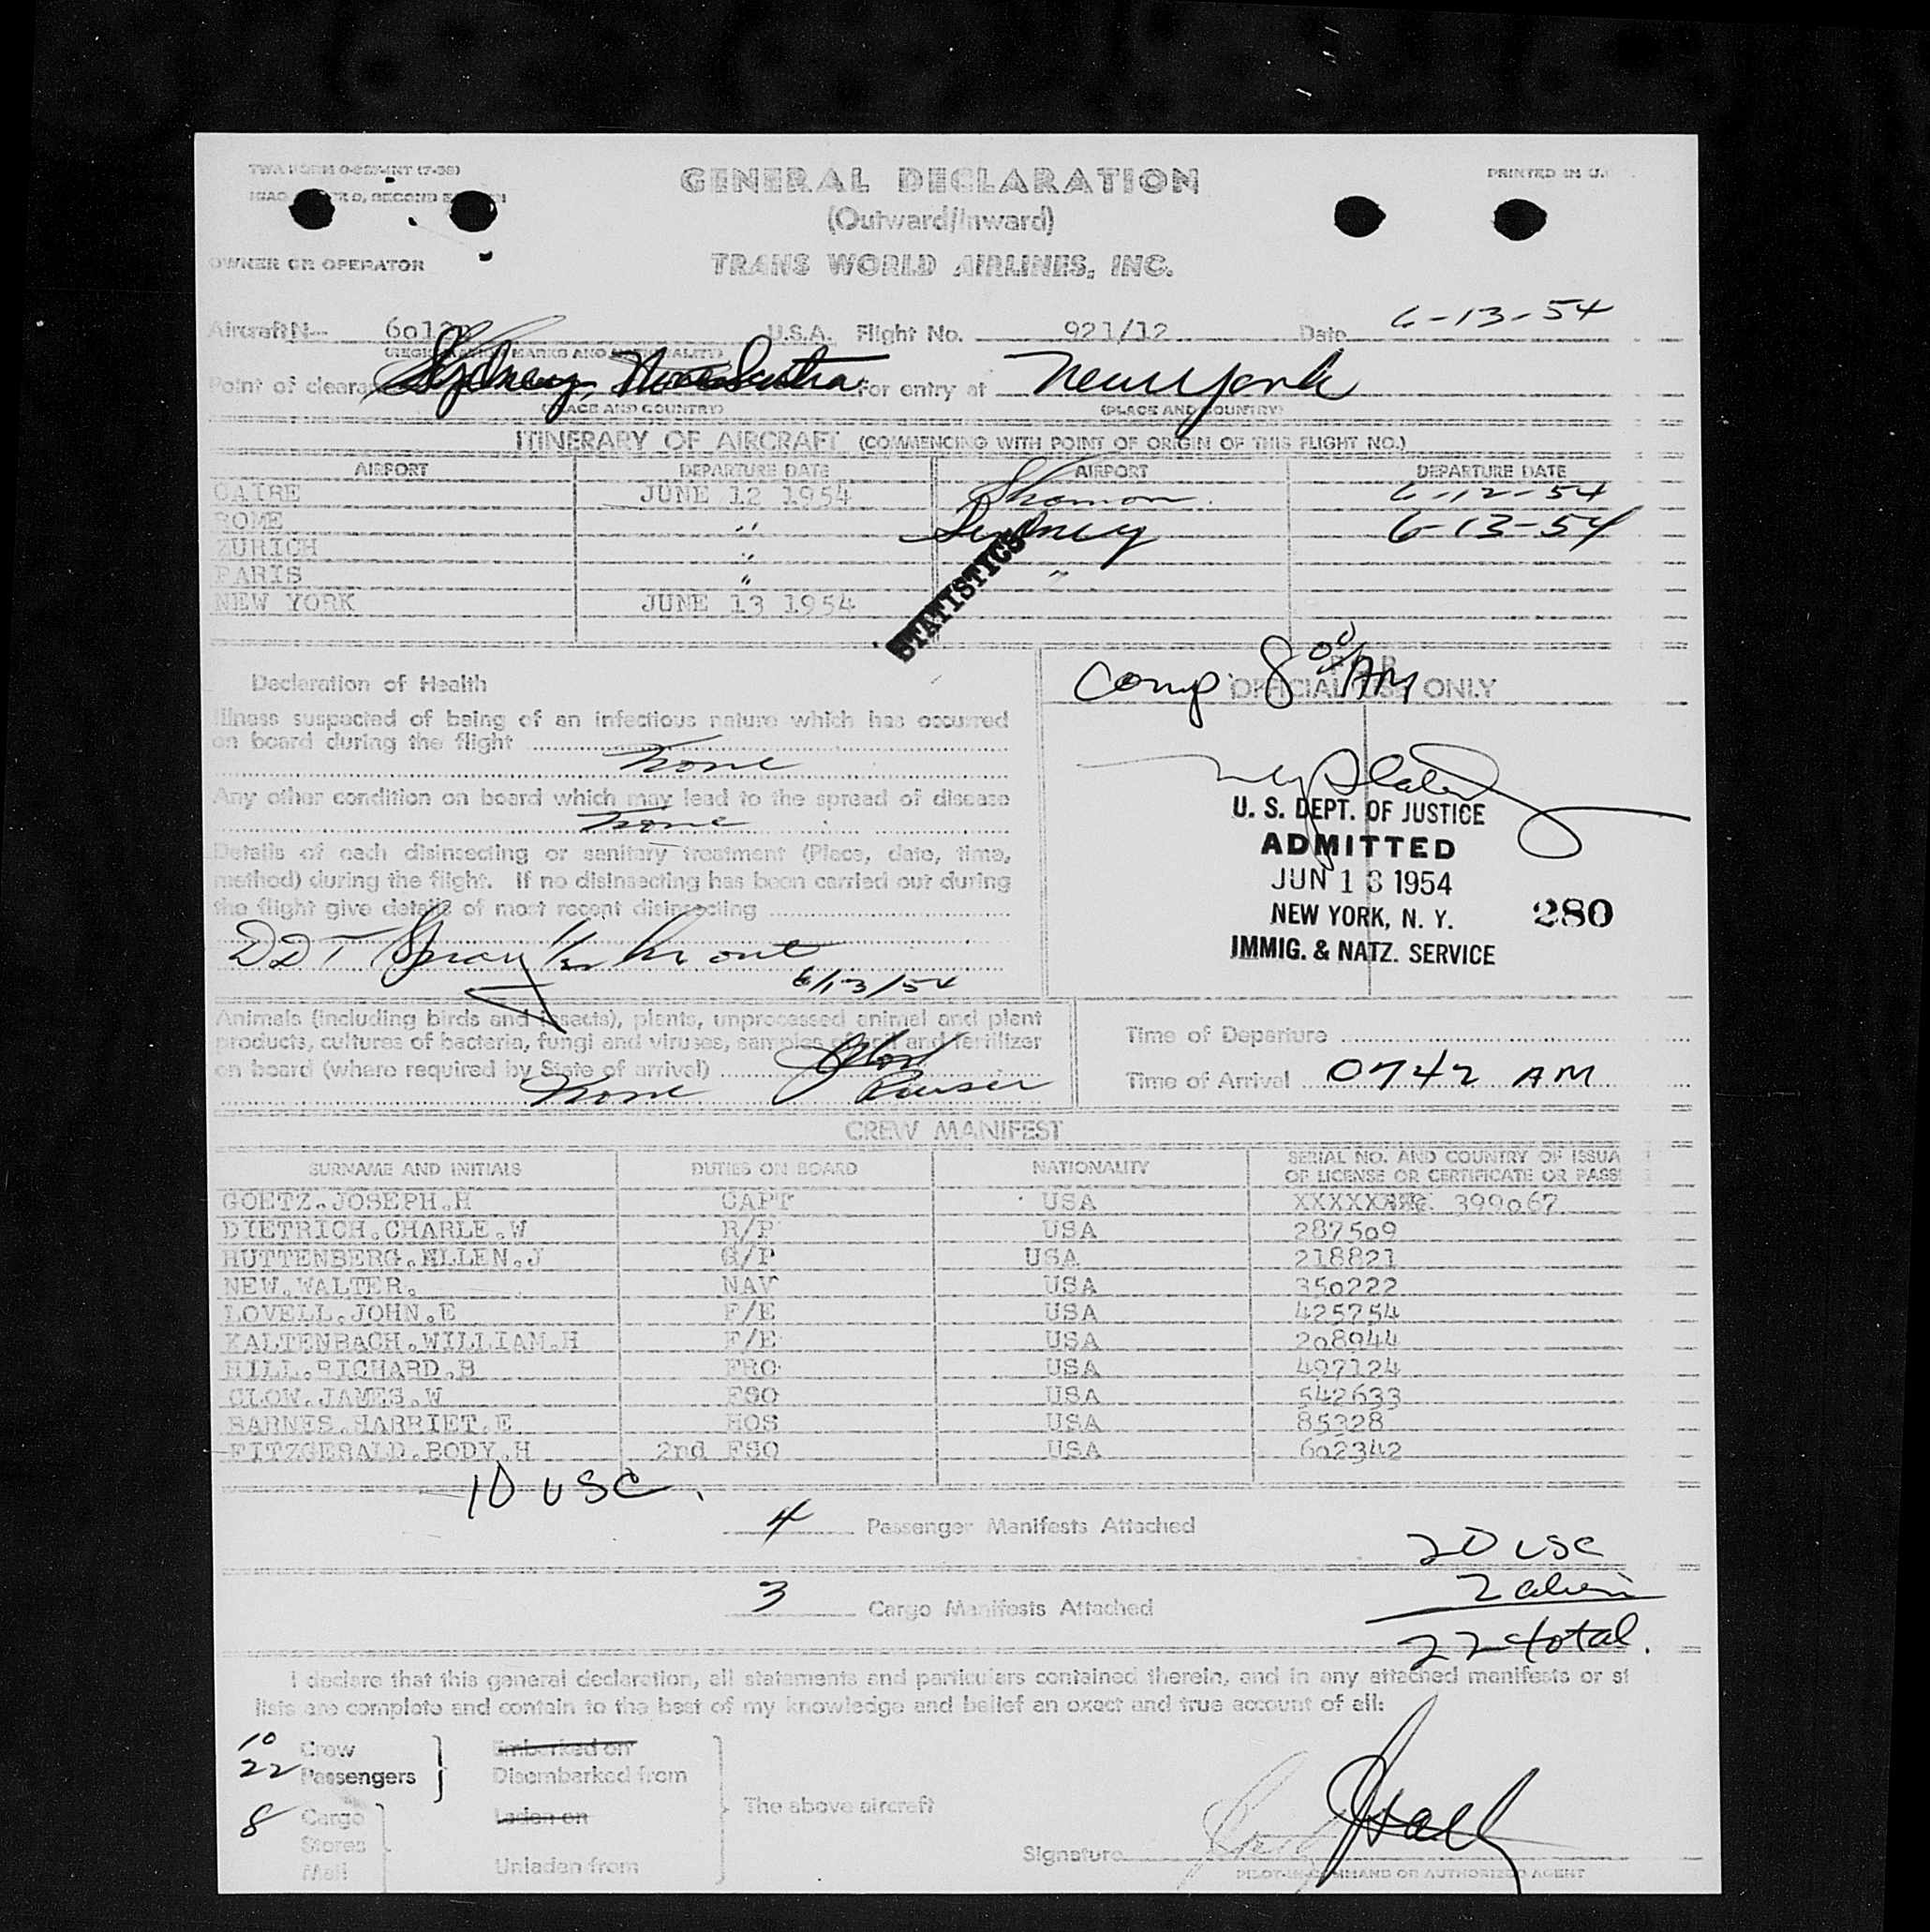 TWA FORM
PRINTED IN U.
GENERAL DECLARATION
(Outward/Inward)
OWNER OR OPERATOR
TRANS WORLD AIRLINES, INC.
Aircraft N-- U.S.A. Flight No. 921/12 Date 6-13-54
(REGISTRATION MARKS AND NATIONALITY)
Point of clearance Sydney, For entry at New York
(PLACE AND COUNTRY) (PLACE AND COUNTRY)
ITINERARY OF AIRCRAFT (COMMENCING WITH POINT OF ORIGIN OF THIS FLIGHT NO.)
AIRPORT DEPARTURE DATE AIRPORT DEPARTURE DATE
CAIRE JUNE 12 1954 Shannon 6-12-54
ROME " Sydney 6-13-54
ZURICH "
PARIS " "
NEW YORK JUNE 13 1954
STATISTICS
Comp 8 00/AM
FOR
OFFICIAL USE ONLY
Declaration of Health
Illness suspected of being of an infectious nature which has occurred
on board during the flight
None
Any other condition on board which may lead to the spread of disease
None
Details of each disinsecting or sanitary treatment (Place, date, time,
method) during the flight. If no disinsecting has been carried out during
the flight give details of most recent disinsecting
DDT Spray 1/2 hr out
6/13/54
U. S. DEPT. OF JUSTICE
ADMITTED
JUN 13 1954
NEW YORK, N. Y. 280
IMMIG. & NATZ. SERVICE
Animals (including birds and insects), plants, unprocessed animal and plant
products, cultures of bacteria, fungi and viruses, samples of soil and fertilizer
on board (where required by State of arrival)
None Purser
Time of Departure
Time of Arrival 0742 AM
CREW MANIFEST
SURNAME AND INITIALS DUTIES ON BOARD NATIONALITY SERIAL NO. AND COUNTRY OF ISSUA
OF LICENSE OR CERTIFICATE OR PASS
GOETZ.JOSEPH.H CAPT USA 399067
DIETRICH.CHARLE.W R/P USA 287509
HUTTENBERG.ELLEN.J G/P USA 218821
NEW.WALTER. NAV USA 350222
LOVELL.JOHN.E F/E USA 425754
KALTENBACH.WILLIAM.H F/E USA 208944
HILL.RICHARD.B FRO USA 497124
CLOW.JAMES.W FSO USA 542633
BARNES.HARRIET.E HOS USA 85328
FITZGERALD.BODY.H 2nd FSO USA 602342
10 USC.
4 Passenger Manifests Attached
20 USC
3 Cargo Manifests Attached
2 alien
22 total.
I declare that this general declaration, all statements and particulars contained therein, and in any attached manifests or st
lists are complete and contain to the best of my knowledge and belief an exact and true account of all:
10 Crew Embarked on
22 Passengers Disembarked from
The above aircraft
8 Cargo Laden on
Stores
Mail Unladen from
Signature
PILOT-IN-COMMAND OR AUTHORIZED AGENT